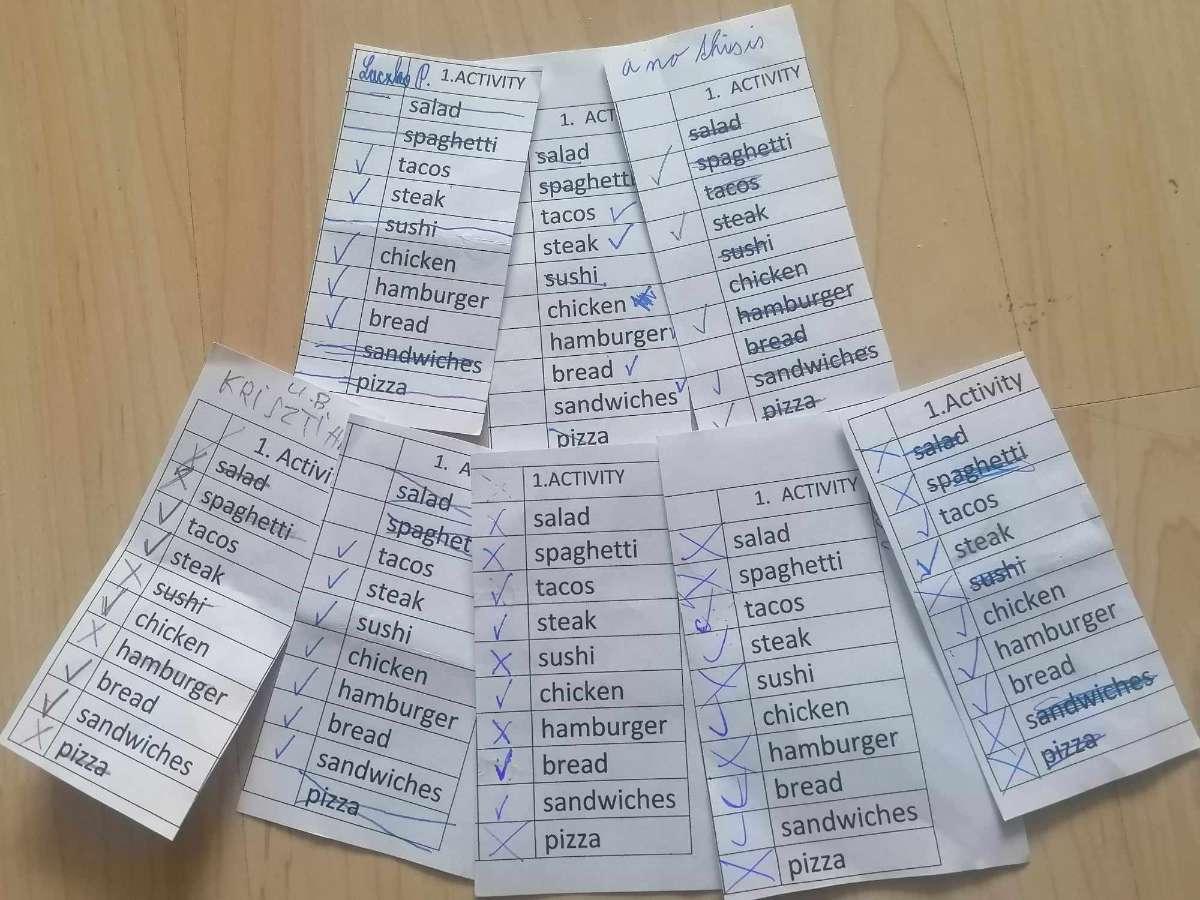 Laczko P. 1.ACTIVITY
salad
spaghetti
tacos
steak
sushi
chicken
hamburger
bread
sandwiches
pizza
1. ACT
salad
spaghetti
tacos
steak
sushi
chicken
hamburger
bread
sandwiches
pizza
a no shisis
1. ACTIVITY
salad
spaghetti
tacos
steak
sushi
chicken
hamburger
bread
sandwiches
pizza
4.B
KRISZTIA
1. Activi
salad
spaghetti
tacos
steak
sushi
chicken
hamburger
bread
sandwiches
pizza
1. A
salad
spaghet
tacos
steak
sushi
chicken
hamburger
bread
sandwiches
pizza
1.ACTIVITY
salad
spaghetti
tacos
steak
sushi
chicken
hamburger
bread
sandwiches
pizza
1. ACTIVITY
salad
spaghetti
tacos
steak
sushi
chicken
hamburger
bread
sandwiches
pizza
1.Activity
salad
spaghetti
tacos
steak
sushi
chicken
hamburger
bread
sandwiches
pizza